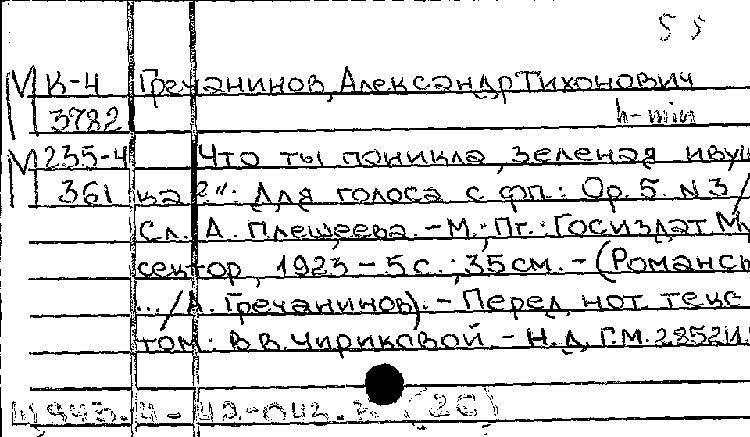 55
М К-4 Гречанинов, Александр Тихонович
3782 h-min
М 235-4 Что ты поникла, зеленая ивуш
361 ка?": Для голоса с фп.: Ор. 5. N 3/
Сл. А. Плещеева. - М.; Пг.: Госиздат. Му
сектор, 1923 - 5 с.; 35 см. - (Романсы
.../А. Гречанинов). - Перед нот текс
том: В.В. Чириковой. - Н.д. Г.М. 2852И.